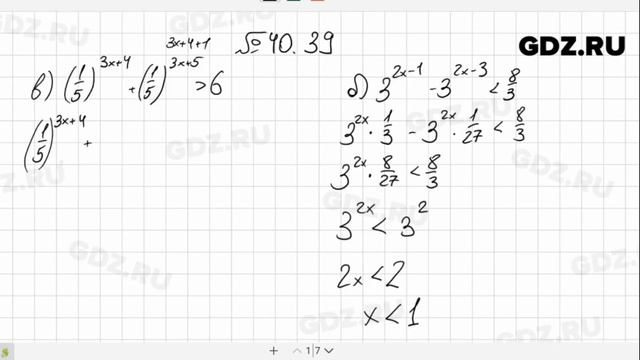 № 40.39
GDZ.RU
в) (1/5)^(3x+4) + (1/5)^(3x+5) > 6
3x+4+1
(1/5)^(3x+4) +
б) 3^(2x-1) - 3^(2x-3) < 8/3
3^(2x) · 1/3 - 3^(2x) · 1/27 < 8/3
3^(2x) · 8/27 < 8/3
3^(2x) < 3^2
2x < 2
x < 1
1/7